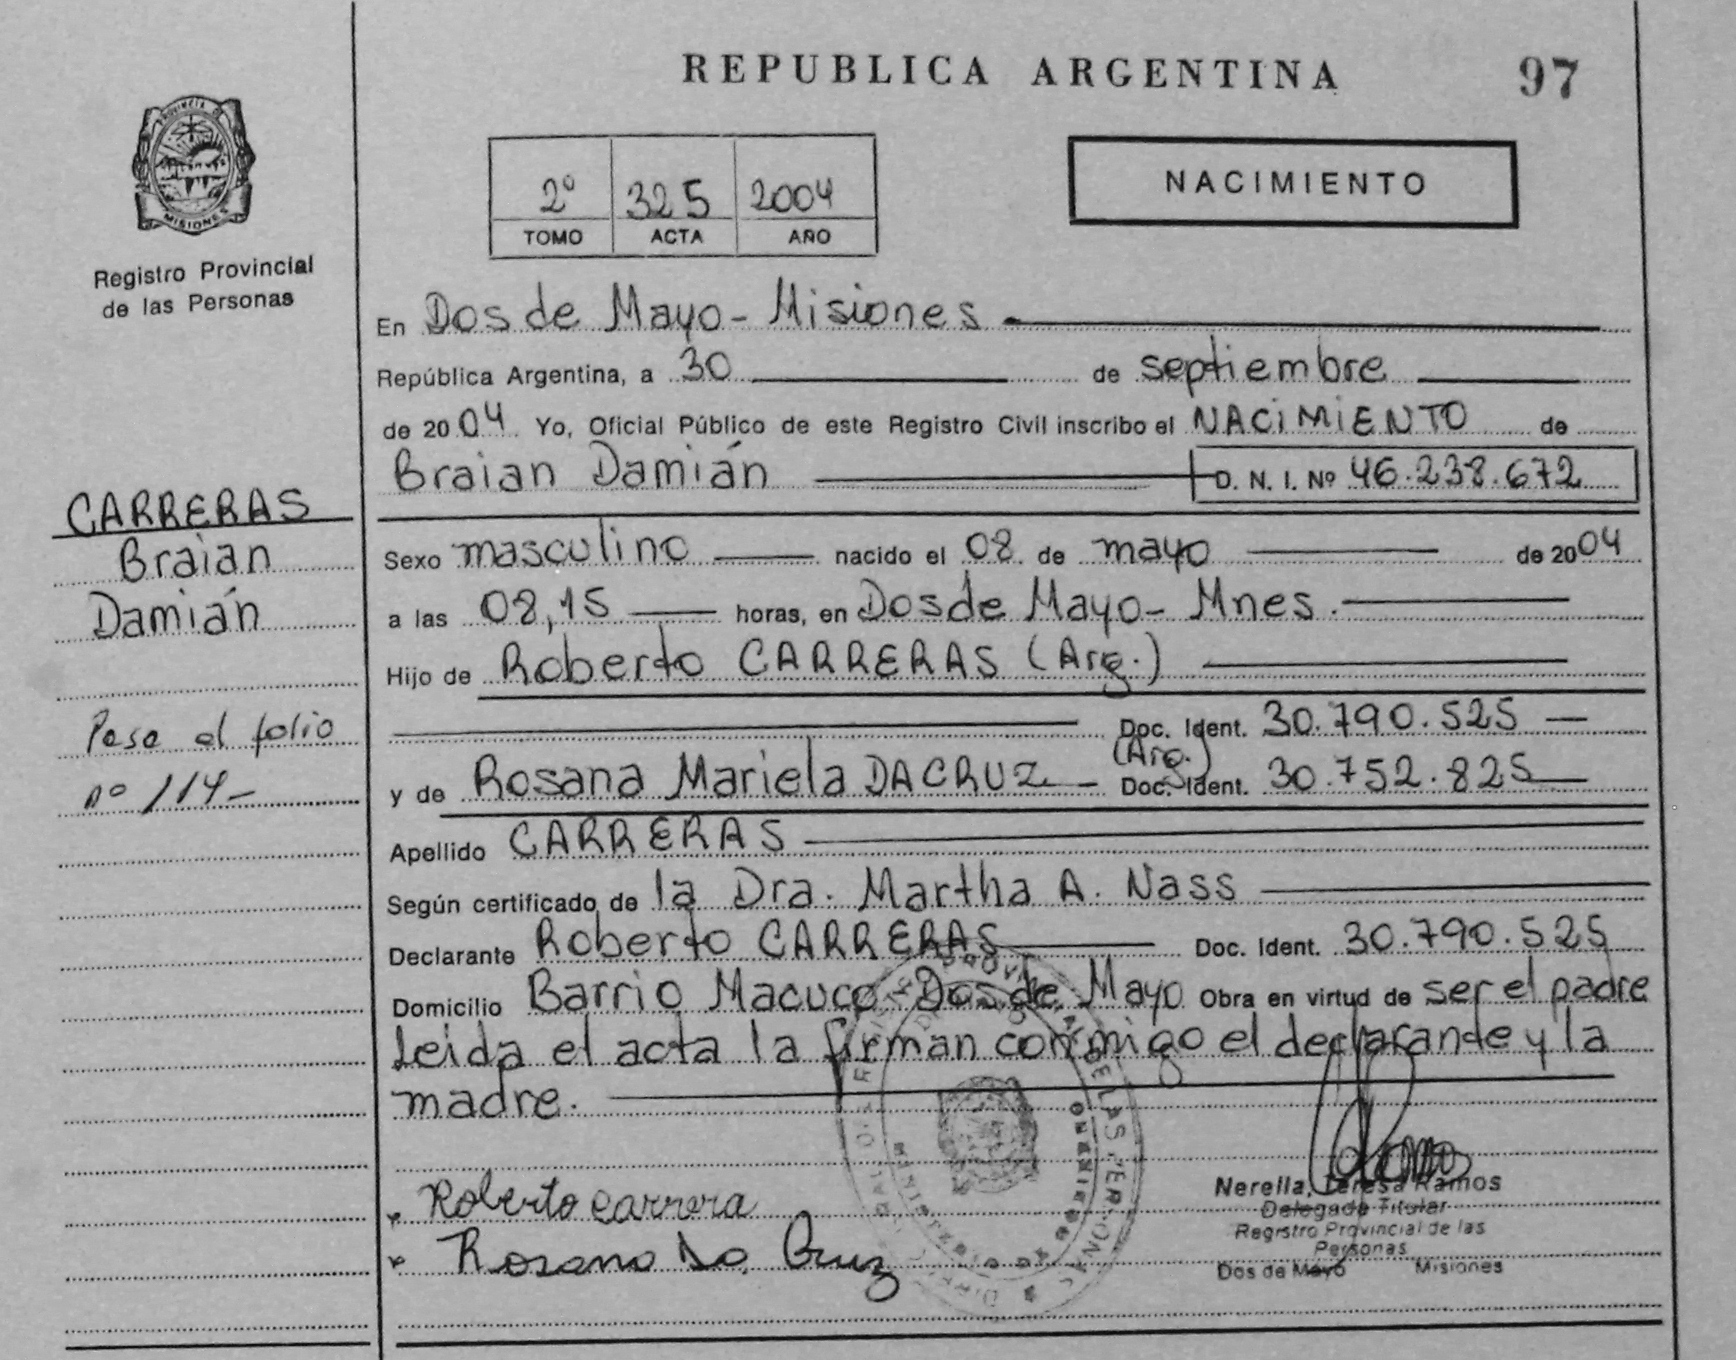 REPUBLICA ARGENTINA 97
PROVINCIA DE
MISIONES
Registro Provincial
de las Personas
2º 325 2004
TOMO ACTA AÑO
NACIMIENTO
En Dos de Mayo - Misiones
República Argentina, a 30 de septiembre
de 2004 Yo, Oficial Público de este Registro Civil inscribo el NACIMIENTO de
Braian Damián D. N. I. Nº 46.238.672
CARRERAS
Braian
Damián
Pasa al folio
nº 114-
Sexo masculino nacido el 08 de mayo de 2004
a las 08,15 horas, en Dos de Mayo - Mnes.
Hijo de Roberto CARRERAS (Arg.)
Doc. Ident. 30.790.525
(Arg.)
y de Rosana Mariela DACRUZ Doc. Ident. 30.752.825
Apellido CARRERAS
Según certificado de la Dra. Martha A. Nass
Declarante Roberto CARRERAS Doc. Ident. 30.790.525
Domicilio Barrio Macuco - Dos de Mayo Obra en virtud de ser el padre
Leida el acta la firman conmigo el declarande y la
madre.
Roberto Carrera
Rosana Da Cruz
Nerella, Teresa Ramos
Delegada Titular
Registro Provincial de las
Personas
Dos de Mayo Misiones